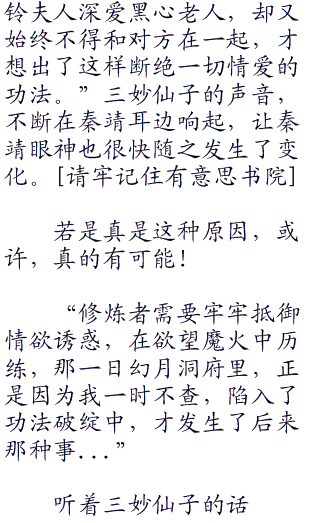 铃夫人深爱黑心老人，却又
始终不得和对方在一起，才
想出了这样断绝一切情爱的
功法。”三妙仙子的声音，
不断在秦靖耳边响起，让秦
靖眼神也很快随之发生了变
化。[请牢记住有意思书院]
若是真是这种原因，或
许，真的有可能！
“修炼者需要牢牢抵御
情欲诱惑，在欲望魔火中历
练，那一日幻月洞府里，正
是因为我一时不查，陷入了
功法破绽中，才发生了后来
那种事...”
听着三妙仙子的话